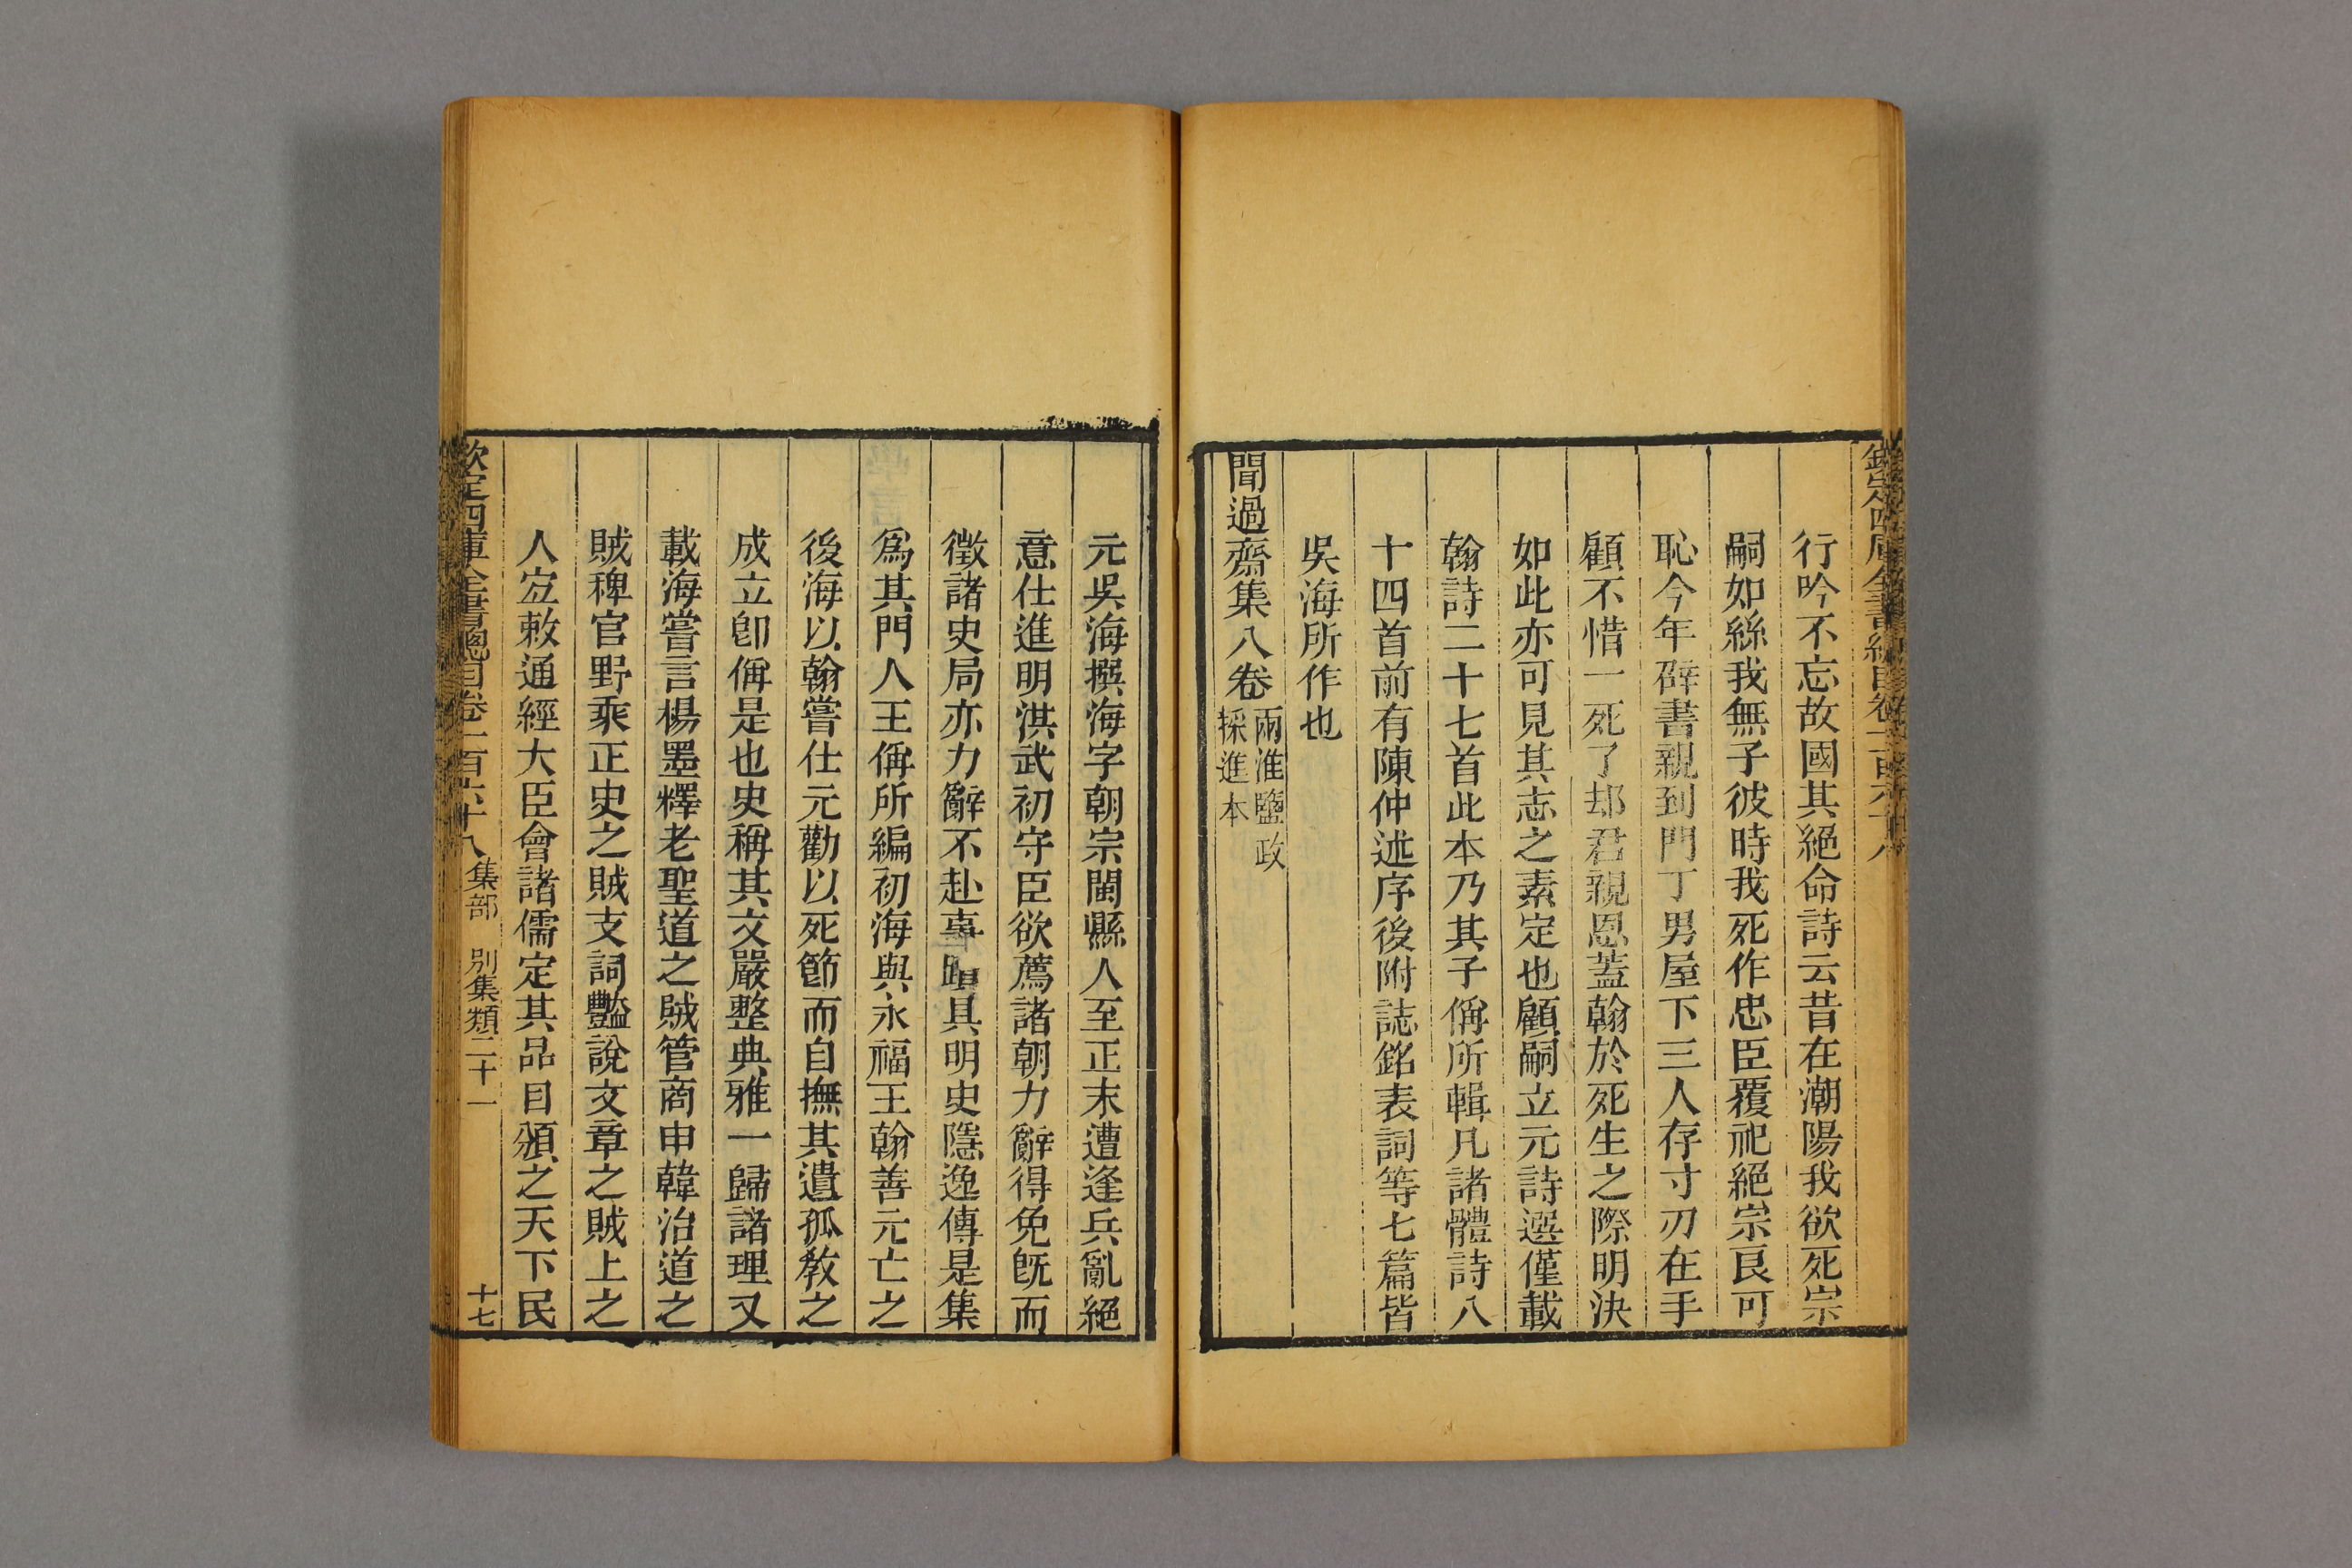 欽定四庫全書總目卷一百六十八
行吟不忘故國其絕命詩云昔在潮陽我欲死宗
嗣如絲我無子彼時我死作忠臣覆祀絕宗良可
恥今年辟書親到門丁男屋下三人存寸刃在手
顧不惜一死了却君親恩蓋翰於死生之際明決
如此亦可見其志之素定也顧嗣立元詩選僅載
翰詩二十七首此本乃其子偁所輯凡諸體詩八
十四首前有陳仲述序後附誌銘表詞等七篇皆
吳海所作也
聞過齋集八卷兩淮鹽政採進本
元吳海撰海字朝宗閩縣人至正末遭逢兵亂絕
意仕進明洪武初守臣欲薦諸朝力辭得免旣而
徵諸史局亦力辭不赴事蹟具明史隱逸傳是集
爲其門人王偁所編初海與永福王翰善元亡之
後海以翰嘗仕元勸以死節而自撫其遺孤敎之
成立卽偁是也史稱其文嚴整典雅一歸諸理又
載海嘗言楊墨釋老聖道之賊管商申韓治道之
賊稗官野乘正史之賊支詞豔說文章之賊上之
人宜敕通經大臣會諸儒定其品目頒之天下民
欽定四庫全書總目卷一百六十八 集部 別集類二十一 十七